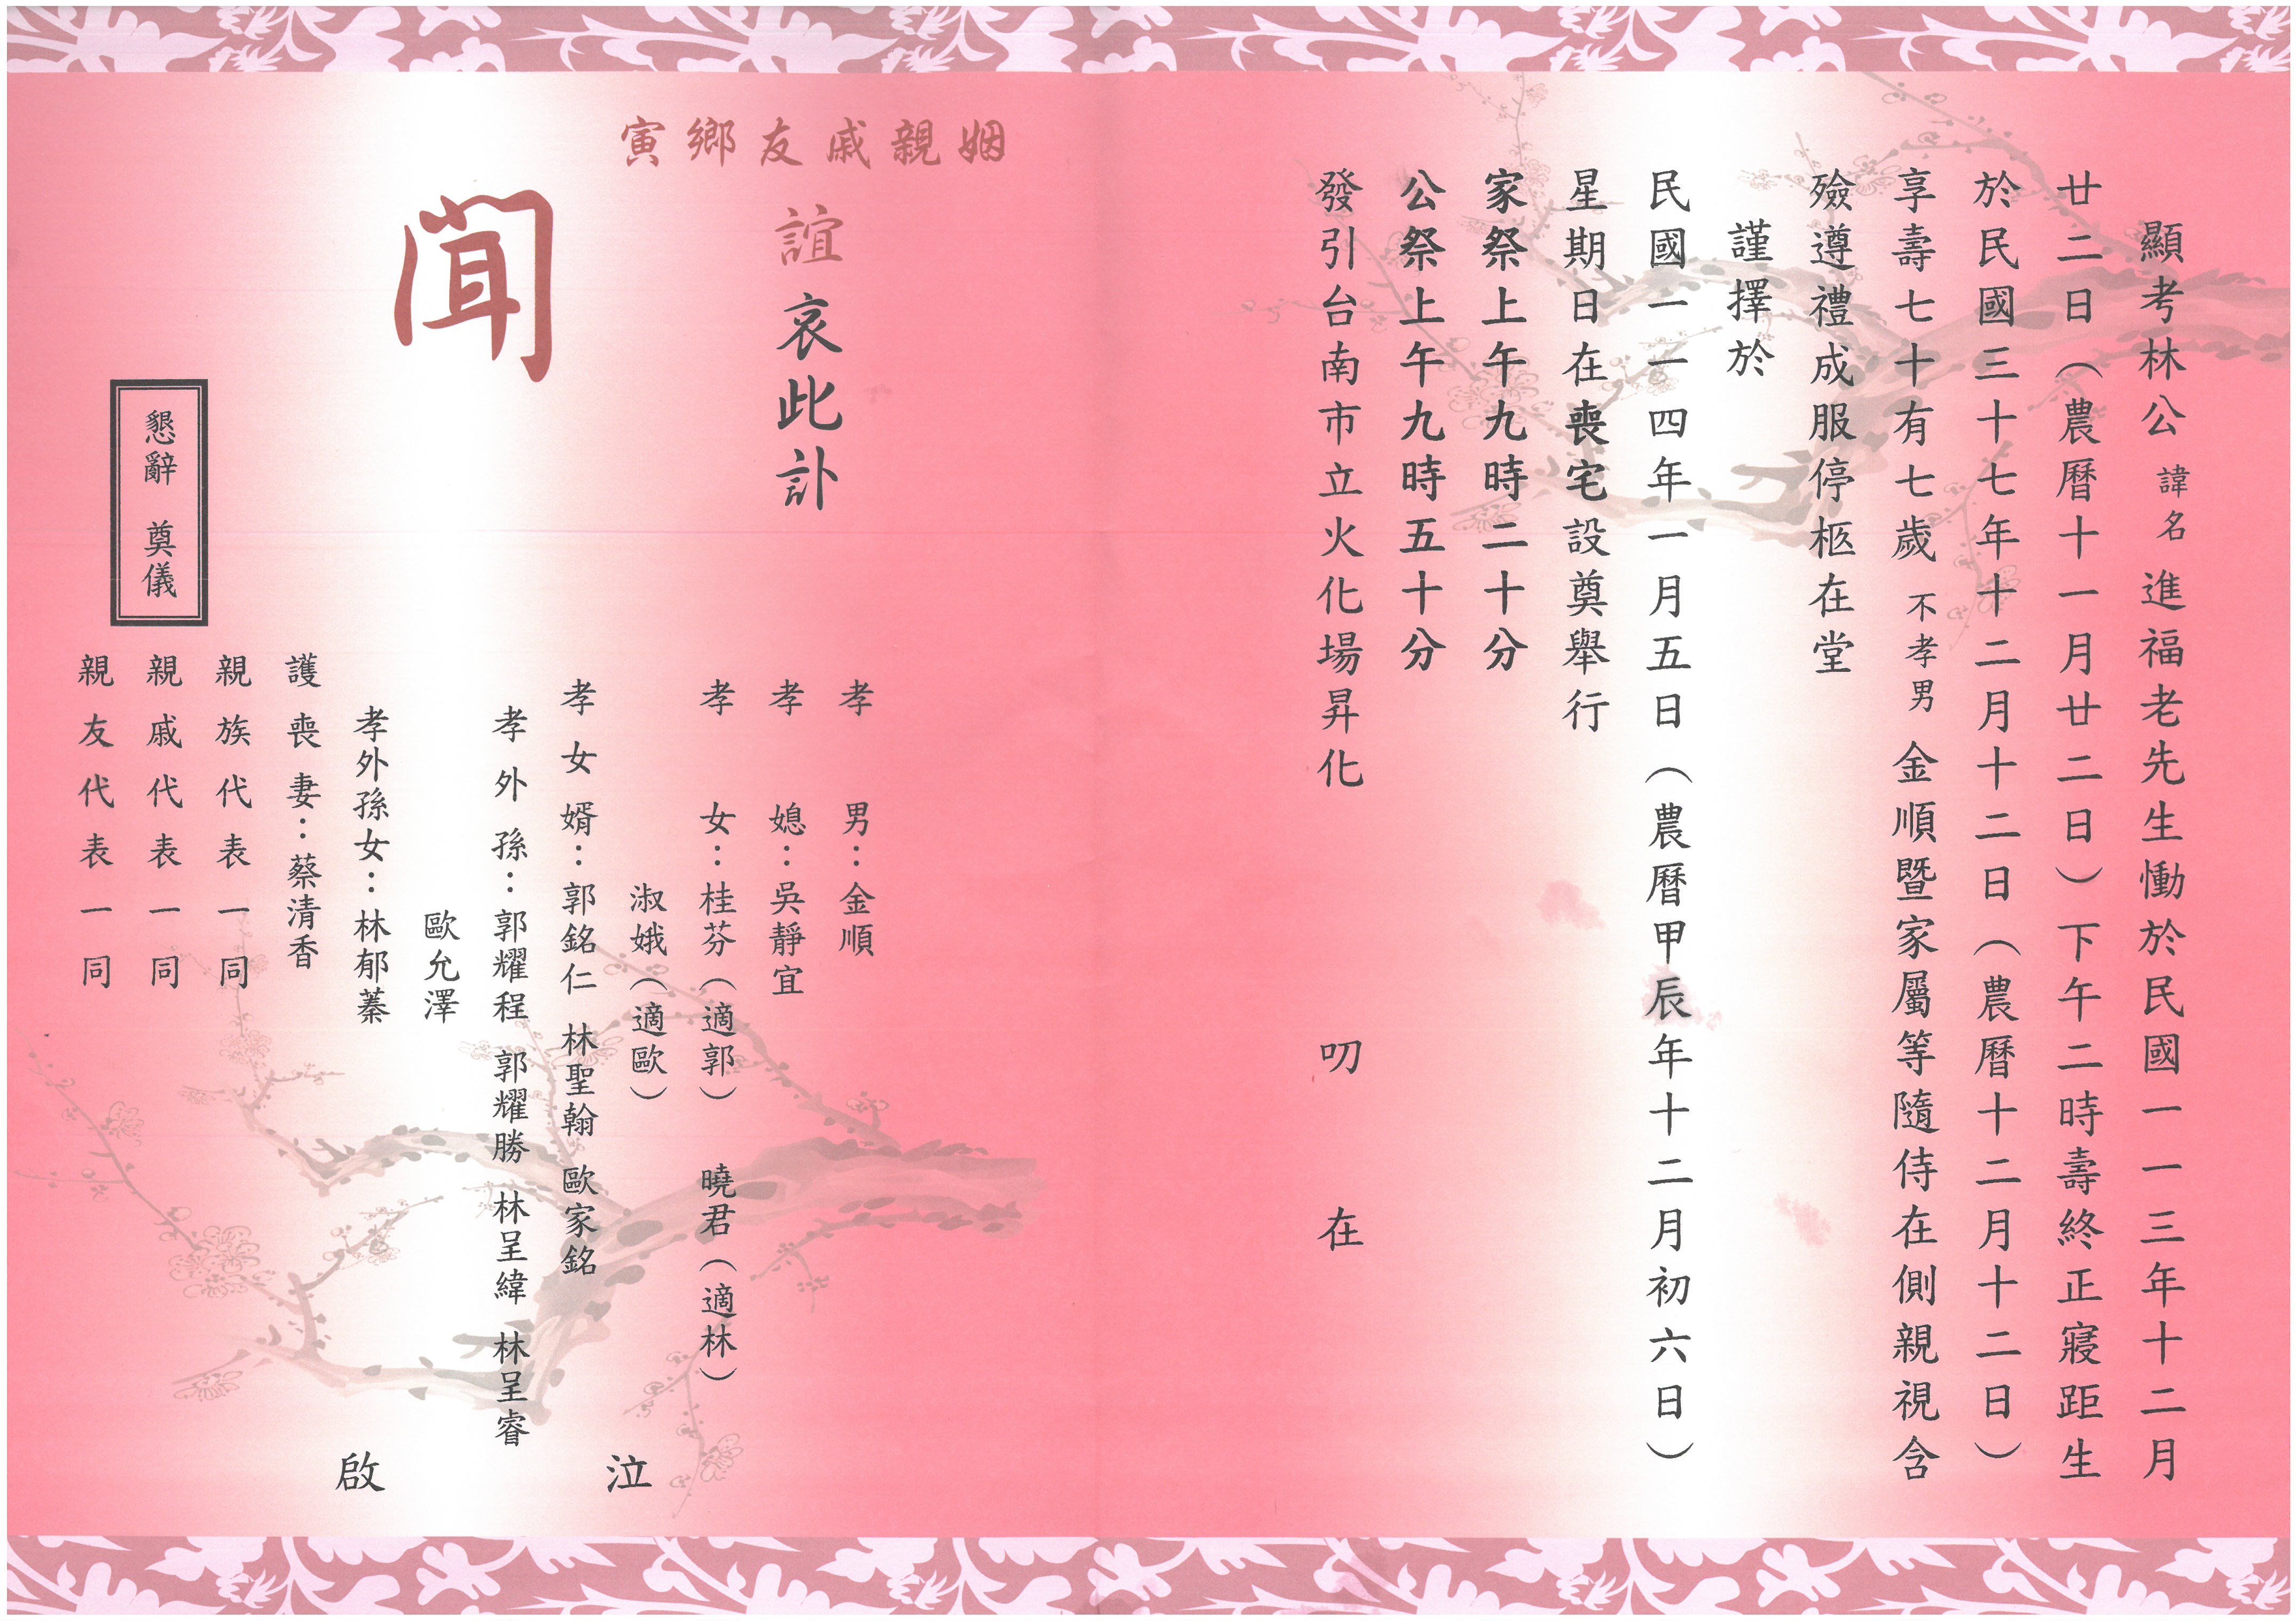 顯考林公諱名進福老先生慟於民國一一三年十二月
廿二日（農曆十一月廿二日）下午二時壽終正寢距生
於民國三十七年十二月十二日（農曆十二月十二日）
享壽七十有七歲不孝男金順暨家屬等隨侍在側親視含
殮遵禮成服停柩在堂
謹擇於
民國一一四年一月五日（農曆甲辰年十二月初六日）
星期日在喪宅設奠舉行
家祭上午九時二十分
公祭上午九時五十分
發引台南市立火化場昇化
叨在
姻親戚友鄉寅
誼哀此訃
聞
孝男：金順
孝媳：吳靜宜
孝女：桂芬（適郭）曉君（適林）
淑娥（適歐）
孝女婿：郭銘仁 林聖翰 歐家銘
孝外孫：郭耀程 郭耀勝 林呈緯 林呈睿
歐允澤
孝外孫女：林郁蓁
護喪妻：蔡清香
親族代表一同
親戚代表一同
親友代表一同
泣啟
懇辭 奠儀